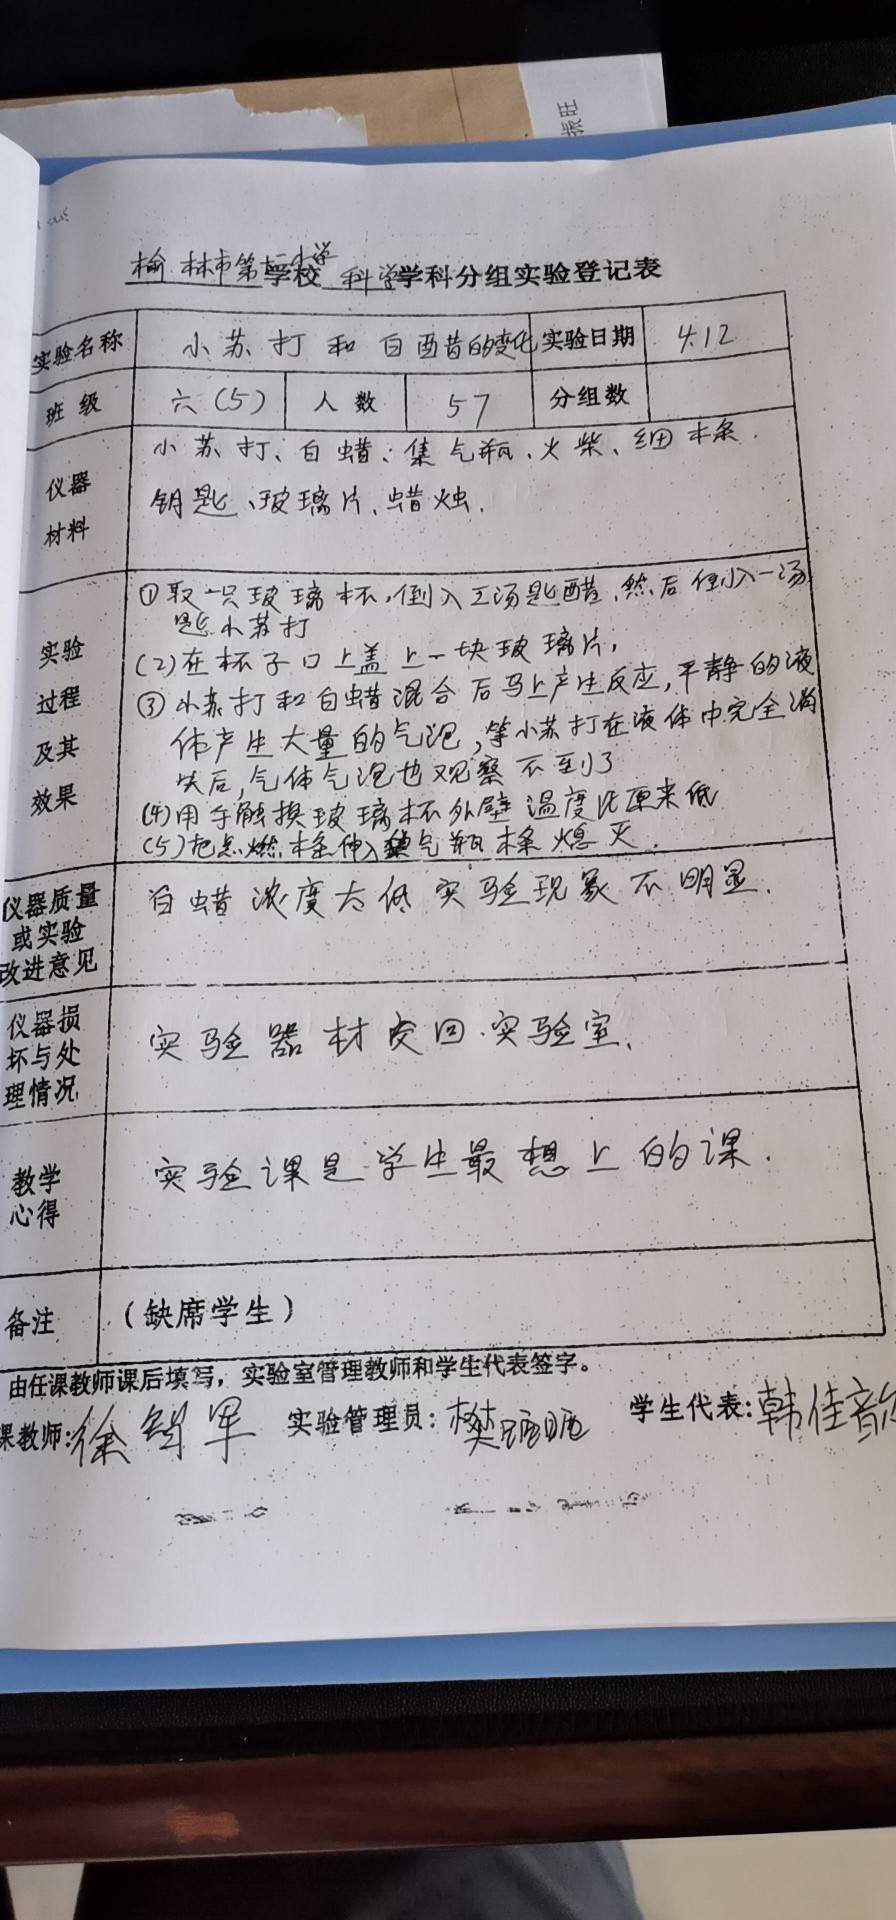 张旺
榆林市第十二小学学校 科学学科分组实验登记表
实验名称 小苏打和白醋的变化 实验日期 4.12
班级 六(5) 人数 57 分组数
仪器材料 小苏打、白蜡、集气瓶、火柴、细木条.
钥匙、玻璃片、蜡烛.
实验过程及其效果
①取一只玻璃杯,倒入三汤匙醋,然后倒入一汤
匙小苏打
(2)在杯子口上盖上一块玻璃片,
③小苏打和白蜡混合后马上产生反应,平静的液
体产生大量的气泡,等小苏打在液体中完全消
失后,气体气泡也观察不到了
(4)用手触摸玻璃杯外壁温度比原来低
(5)把点燃木条伸入集气瓶木条熄灭.
仪器质量或实验改进意见 白蜡浓度太低实验现象不明显.
仪器损坏与处理情况 实验器材交回实验室.
教学心得 实验课是学生最想上的课.
备注 (缺席学生)
由任课教师课后填写,实验室管理教师和学生代表签字。
课教师: 徐 军 实验管理员: 樊 学生代表: 韩佳歆